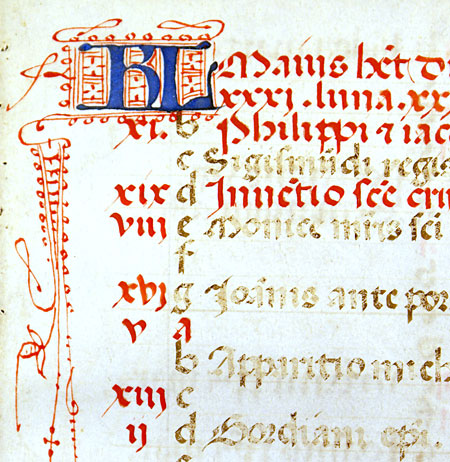 KL Maius hēt di
xxxi . luna . xx
xi. b Philippi ⁊ iac
c Sigismūdi regis
xix d Inuētio scē cru
viii e Monice mr̄is sci
f
xvi g Joānis ante por
v a
b Apparitio mich
xiii c
ii d Gordiani epi.